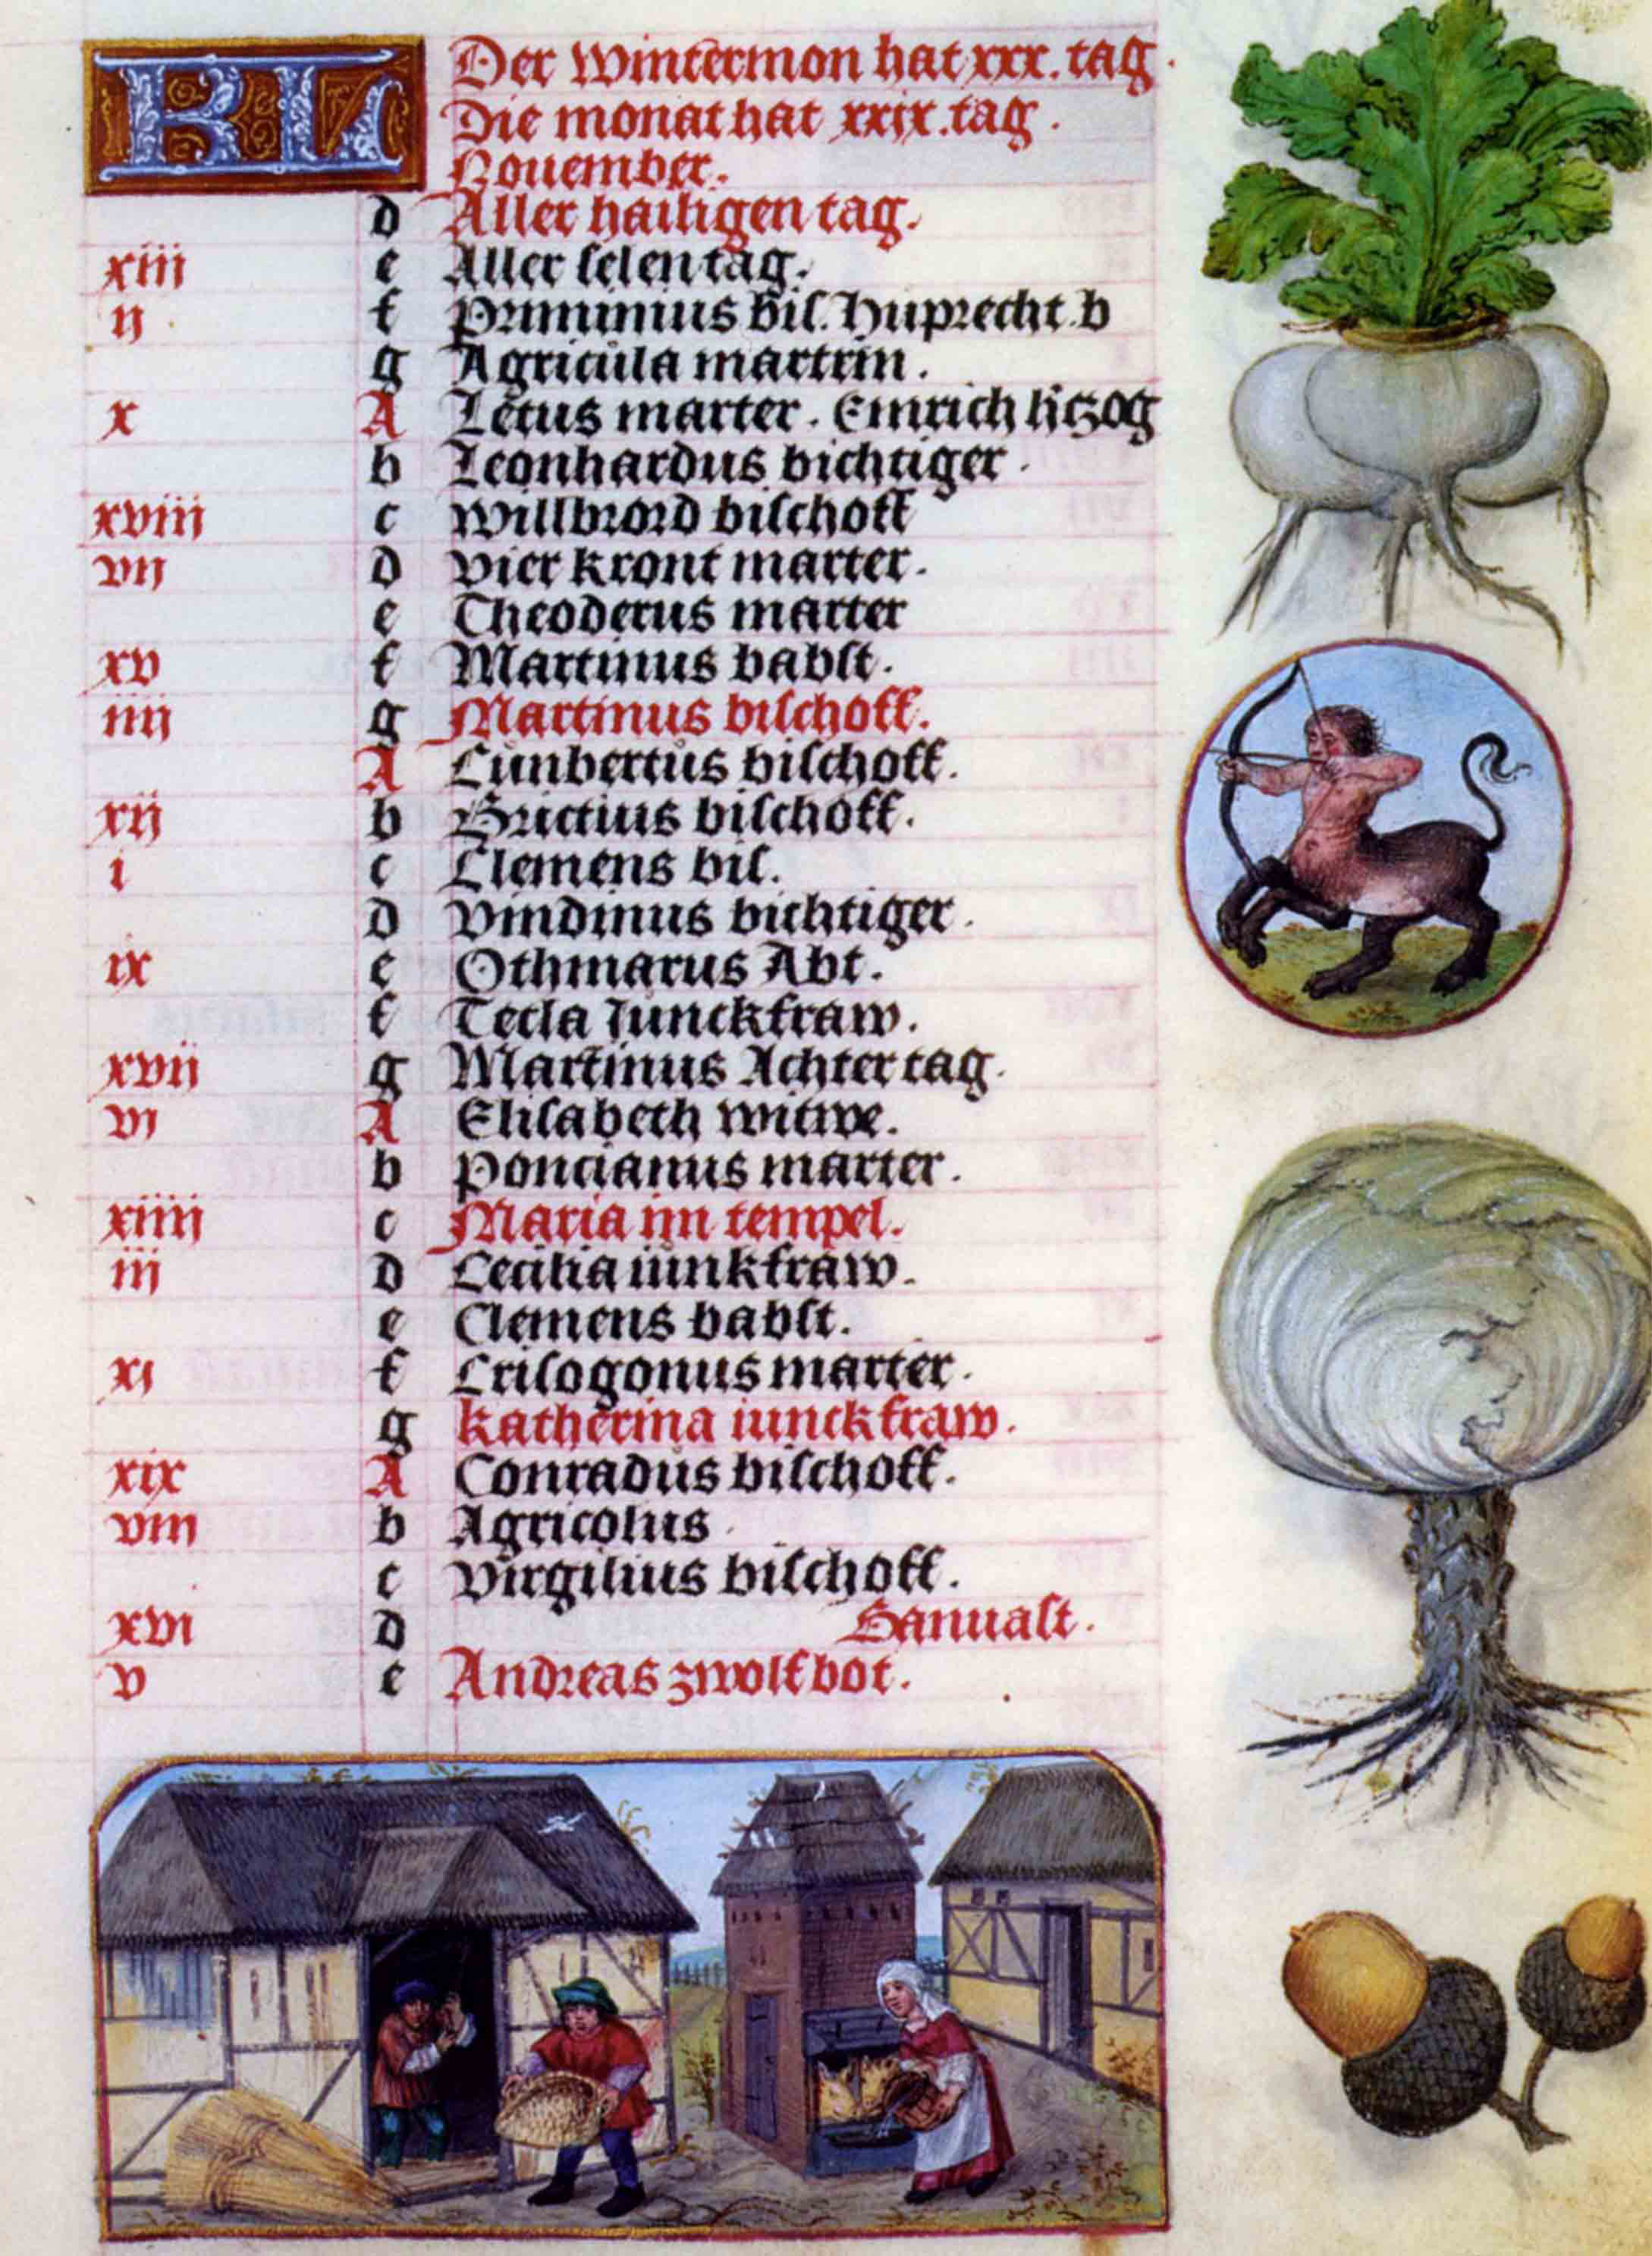 KL Der Wintermon hat xxx. tag.
Die monat hat xxix. tag.
Nouember.
d Aller hailigen tag.
xiii e Aller selen tag.
ij f Priminius bis. Huprecht. b
g Agricula martrin.
x A Letus marter. Emrich
b Leonhardus bichtiger.
xviii c Willbrord bischoff
vij d Vier kront marter.
e Theoderus marter
xv f Martinus babst.
iiij g Martinus bischoff.
A Cunbertus bischoff.
xij b Brictius bischoff.
i c Clemens bis.
d Vindinus bichtiger.
ix e Othmarus Abt.
f Tecla Junckfraw.
xvij g Martinus Achter tag.
vi A Elisabeth witwe.
b Poncianus marter.
xiiij c Maria im tempel.
iij d Cecilia iunkfraw.
e Clemens babst.
xi f Crisogonus marter.
g Katherina iunckfraw.
xix A Conradus bischoff.
viii b Agricolus
c Virgilius bischoff.
xvi d
v e Andreas zwolfbot.